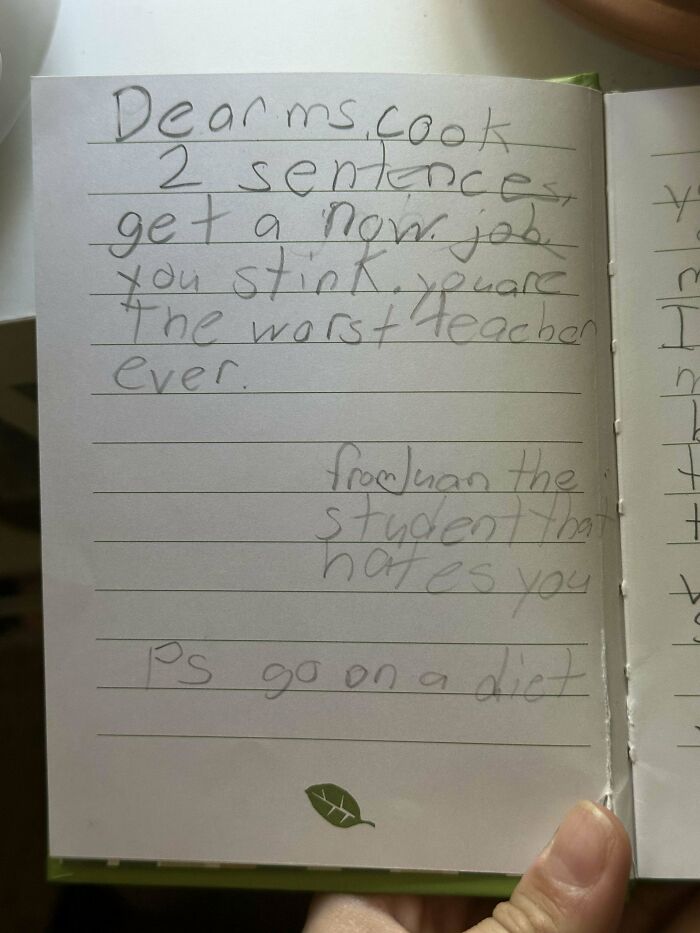 Dear ms. cook
2 sentences,
get a now. job.
you stink. you are
the worst teacher
ever.
from Juan the
student that
hates you
Ps go on a diet